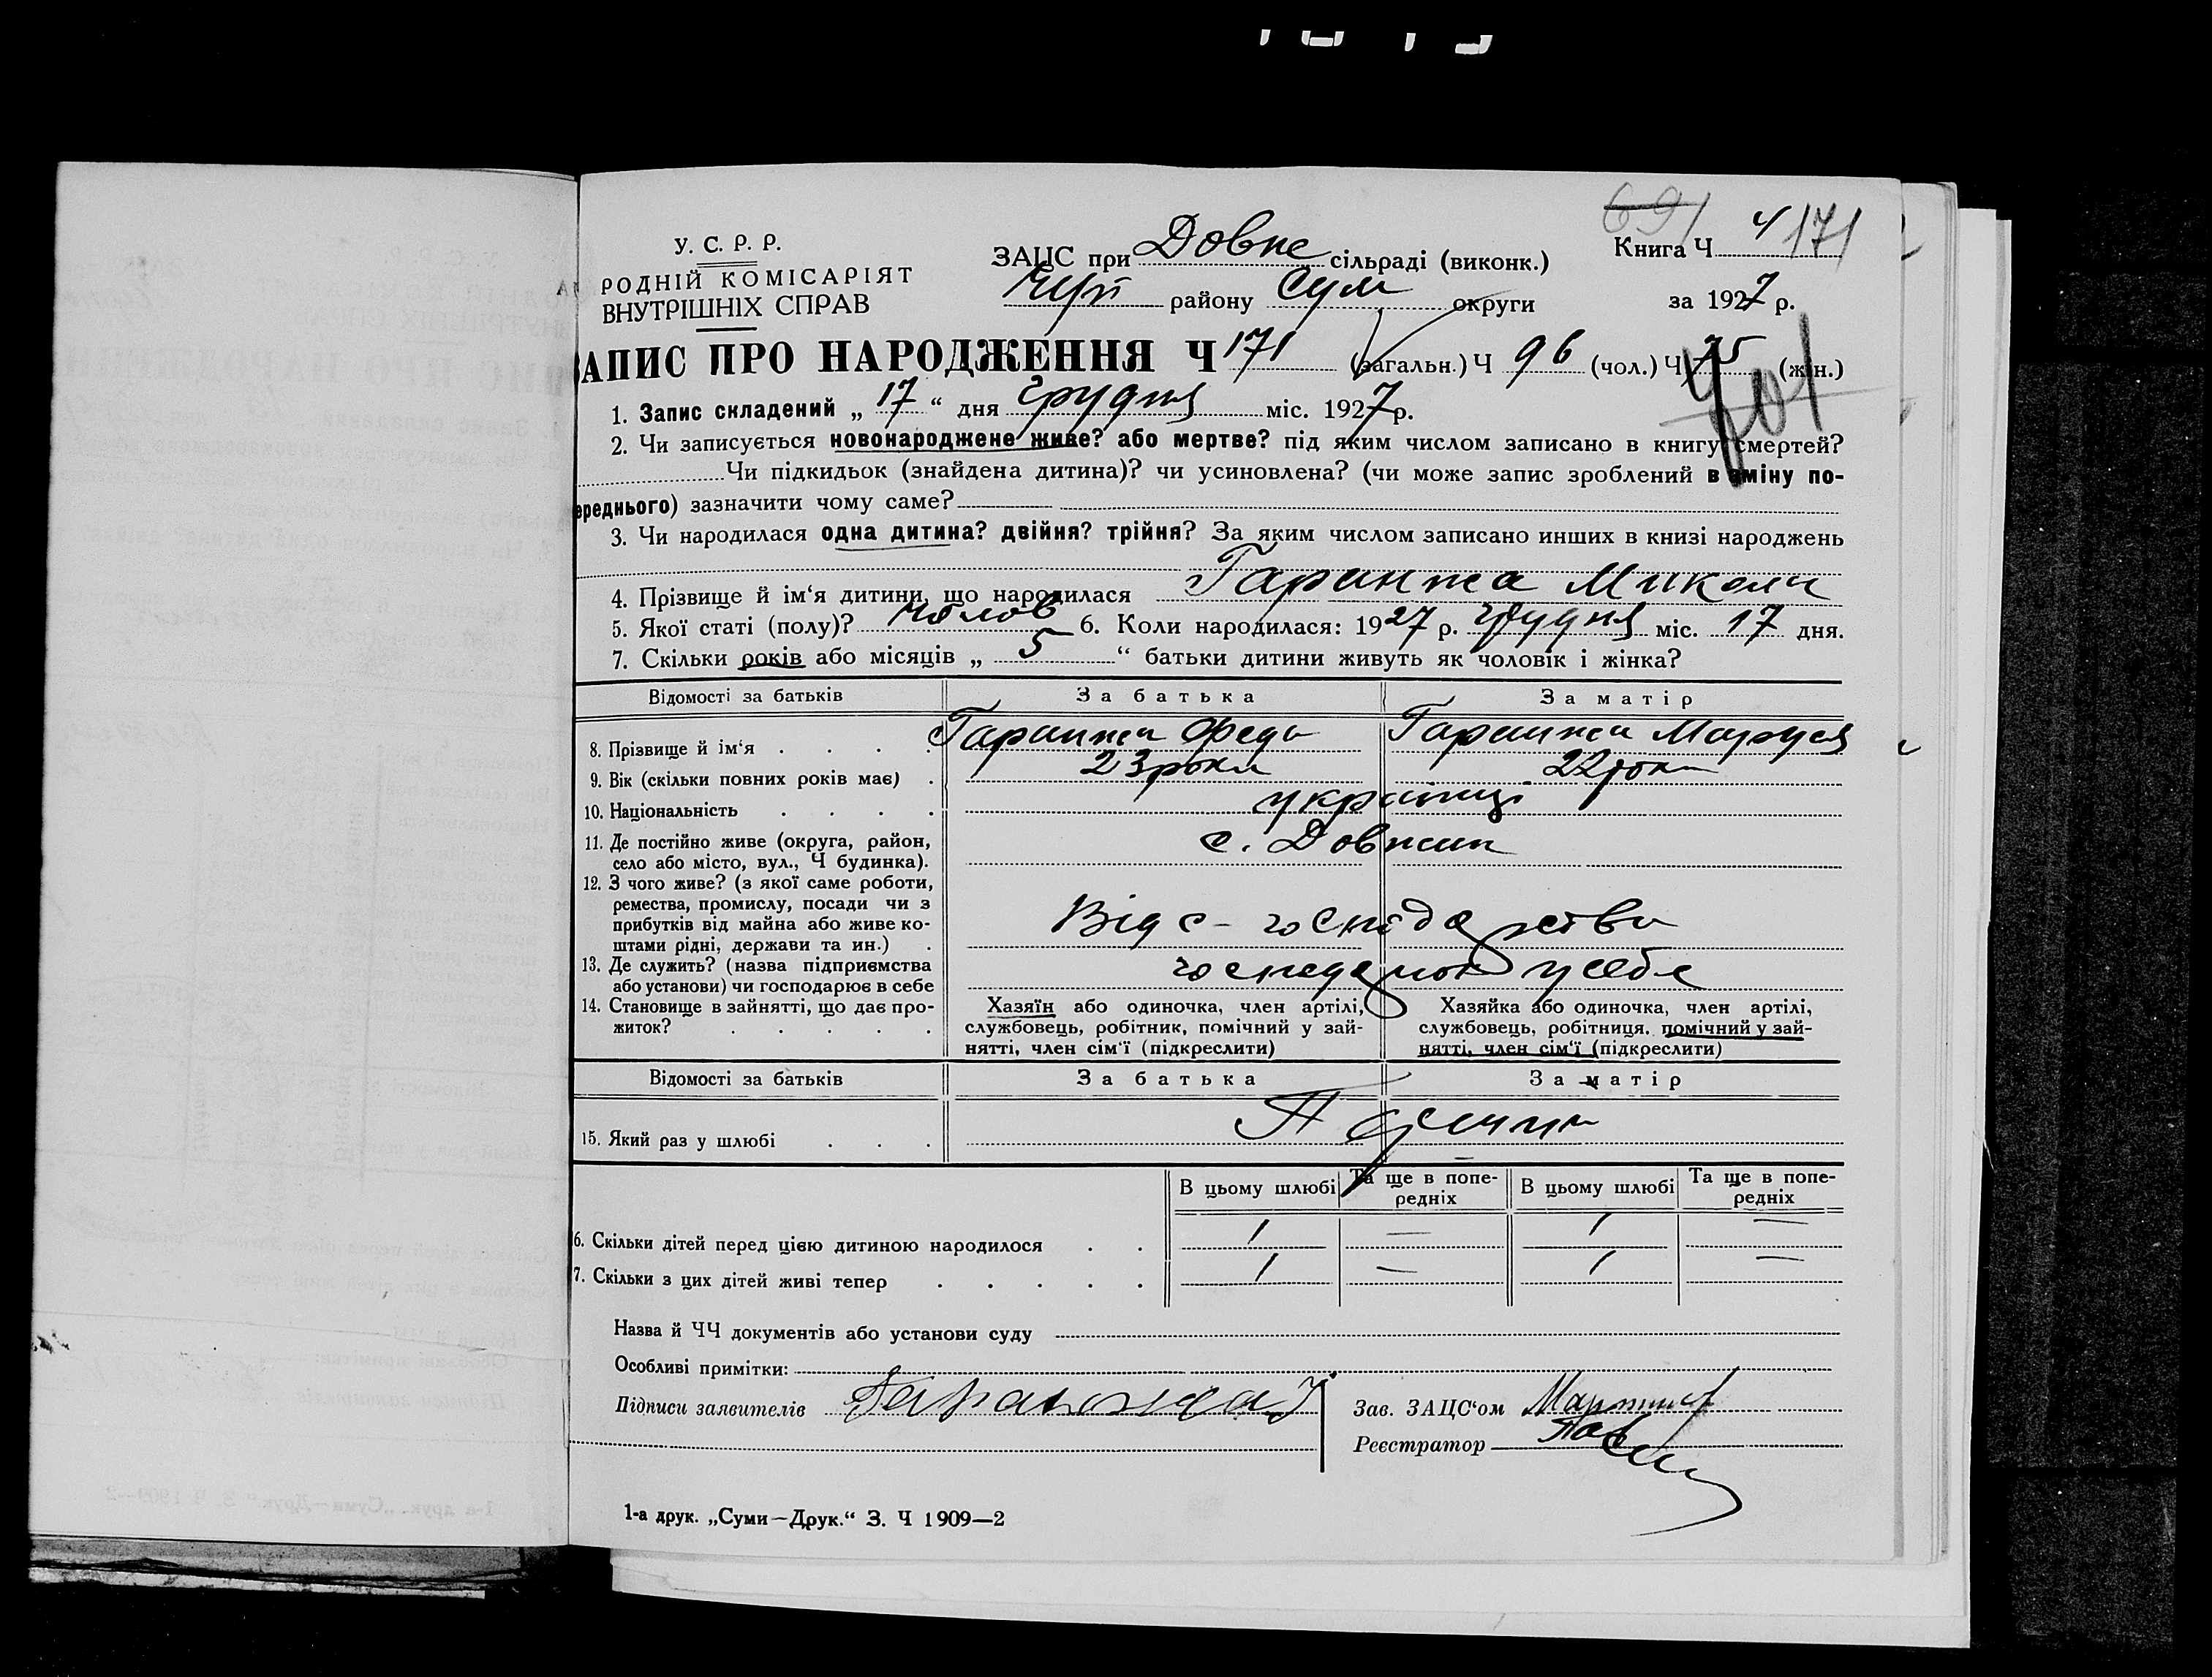 691 171
У. С. Р. Р.
РОДНІЙ КОМІСАРІЯТ
ВНУТРІШНІХ СПРАВ
ЗАЦС при Довже сільраді (виконк.)
Книга Ч 4
району Сум округи
за 1927 р.
ЗАПИС ПРО НАРОДЖЕННЯ Ч 171 (загальн.) Ч 96 (чол.) Ч 75 (жін.)
401
1. Запис складений „ 17 “ дня грудня міс. 1927 р.
2. Чи записується новонароджене живе? або мертве? під яким числом записано в книгу смертей?
Чи підкидьок (знайдена дитина)? чи усиновлена? (чи може запис зроблений в зміну по-
ереднього) зазначити чому саме?
3. Чи народилася одна дитина? двійня? трійня? За яким числом записано инших в книзі народжень
4. Прізвище й ім‘я дитини, що народилася Гаранжа Микола
5. Якої статі (полу)? чолов 6. Коли народилася: 1927 р. грудня міс. 17 дня.
7. Скільки років або місяців „ 5 “ батьки дитини живуть як чоловік і жінка?
Відомості за батьків За батька За матір
8. Прізвище й ім‘я . . . . Гаранжа Федь Гаранжа Маруся
9. Вік (скільки повних років має) . 23 роки 22 роки
10. Національність . . . . українці
11. Де постійно живе (округа, район,
село або місто, вул., Ч будинка). с. Довжик
12. З чого живе? (з якої саме роботи,
ремества, промислу, посади чи з
прибутків від майна або живе ко-
штами рідні, держави та ин.) . Від с-господарства
13. Де служить? (назва підприємства
або установи) чи господарює в себе у себе
14. Становище в зайнятті, що дає про-
житок? . . . . .
Хазяїн або одиночка, член артілі,
службовець, робітник, помічний у зай-
нятті, член сім‘ї (підкреслити)
Хазяйка або одиночка, член артілі,
службовець, робітниця, помічний у зай-
нятті, член сім‘ї (підкреслити)
Відомості за батьків За батька За матір
15. Який раз у шлюбі . . .
В цьому шлюбі Та ще в попе-редніх В цьому шлюбі Та ще в попе-редніх
6. Скільки дітей перед цією дитиною народилося . . 1 — 1 —
7. Скільки з цих дітей живі тепер . . . . . 1 — 1 —
Назва й ЧЧ документів або установи суду
Особливі примітки:
Підписи заявителів Гаранжа
Зав. ЗАЦС‘ом
Реєстратор
1-а друк. „Суми—Друк.“ З. Ч 1909—2